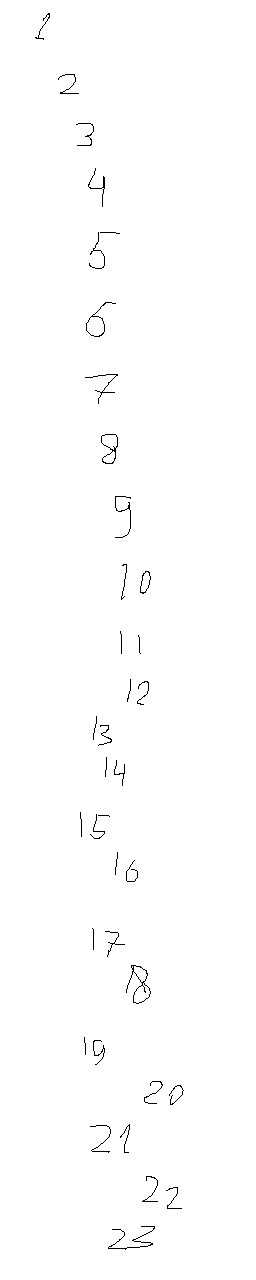 1
2
3
4
5
6
7
8
9
10
11
12
13
14
15
16
17
18
19
20
21
22
23